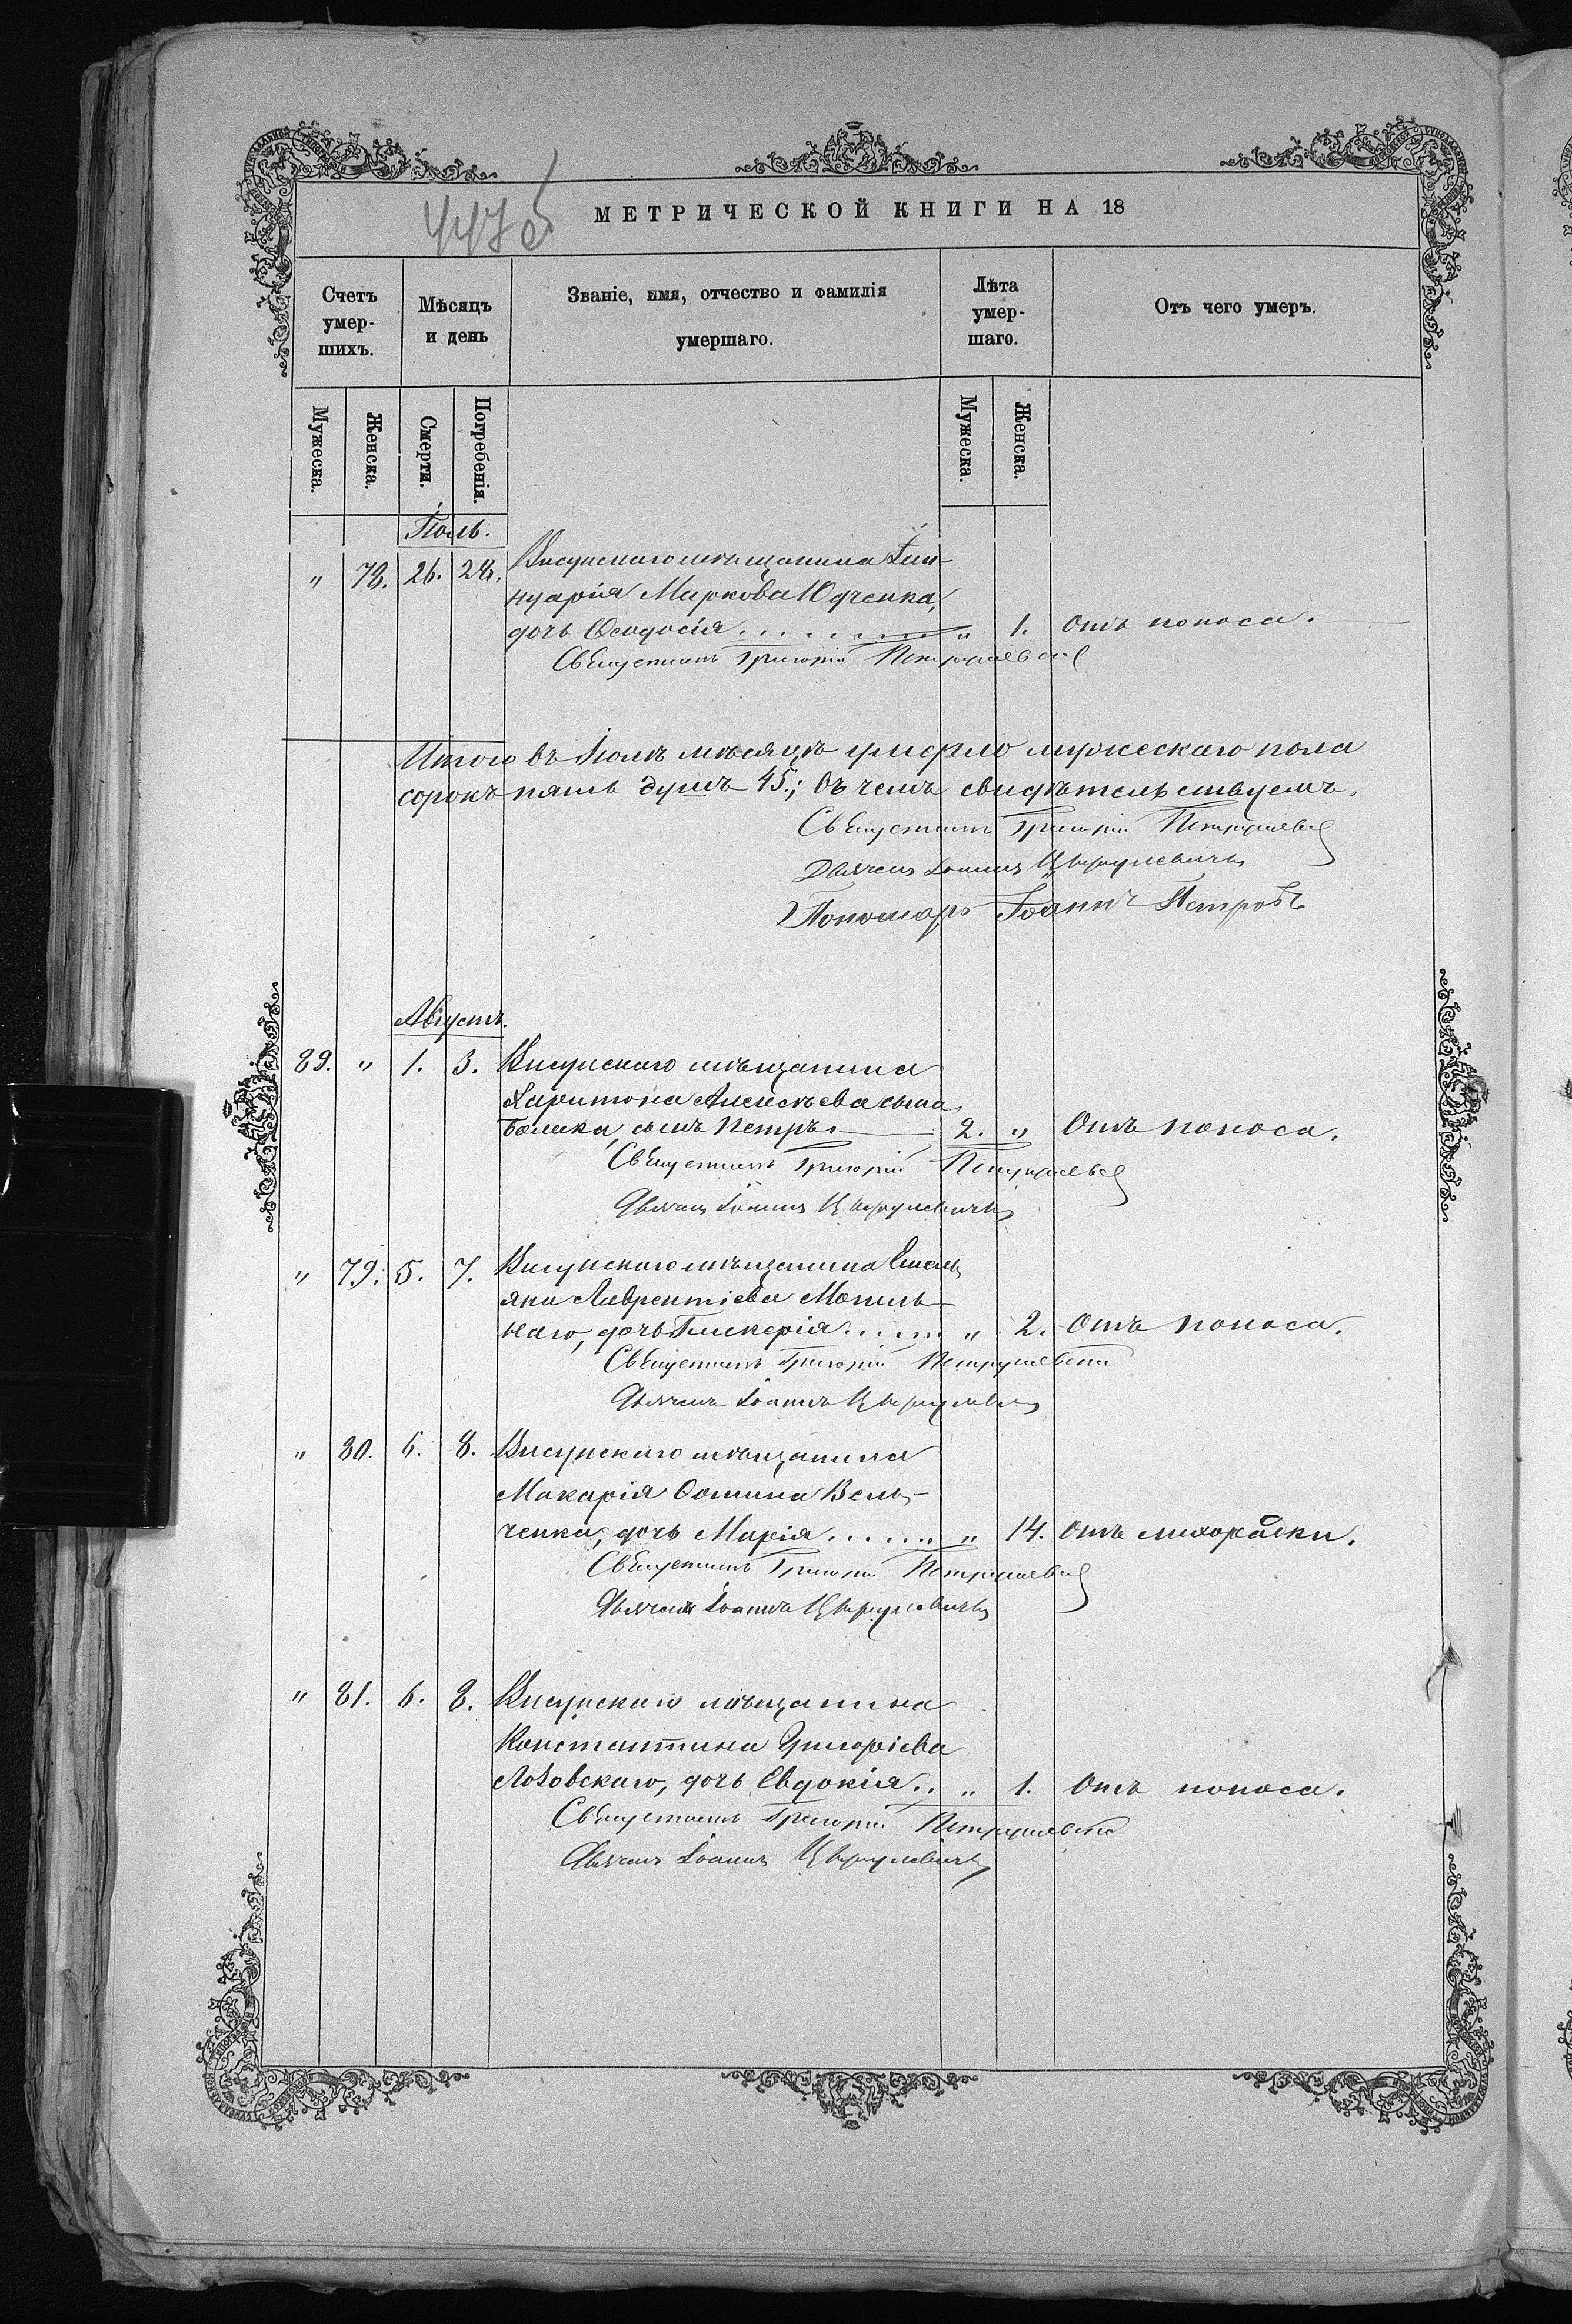 447 об
МЕТРИЧЕСКОЙ КНИГИ НА 18
Счетъ умер-шихъ.
Мѣсяцъ и день
Званіе, имя, отчество и фамилія
умершаго.
Лѣта умер-шаго.
Отъ чего умеръ.
Мужеска.
Женска.
Смерти.
Погребенія.
Мужеска.
Женска.
Іюль.
" 78. 26. 28. Висунскаго мѣщанина Іан-
нуарія Маркова Юдченка,
дочь Ѳеодосія . . . . . . " 1. Отъ поноса.
Священникъ Григорій Петрушевскій
Итого въ Іюлѣ мѣсяцѣ умерло мужескаго пола
сорокъ пять душъ 45.; Въ чемъ свидѣтельствуемъ.
Священникъ Григорій Петрушевскій
Дьячекъ Іоаннъ
Пономарь Іоаннъ Петровъ
Августъ.
89. " 1. 3. Висунскаго мѣщанина
Харитона Алексѣева сына
сынъ Петръ. 2. " Отъ поноса.
Священникъ Григорій Петрушевскій
Дьячекъ Іоаннъ
" 79. 5. 7. Висунскаго мѣщанина Емель
яна Лаврентіева Могиль-
наго, дочь Гликерія . . . . . " 2. Отъ поноса.
Священникъ Григорій Петрушевскій
Дьячекъ Іоаннъ
" 80. 6. 8. Висунскаго мѣщанина
Макарія Ѳомина Вель-
ченка, дочь Марія . . . . . . " 14. Отъ лихорадки.
Священникъ Григорій Петрушевскій
Дьячекъ Іоаннъ
" 81. 6. 8. Висунскаго мѣщанина
Константина Григоріева
Лозовскаго, дочь Евдокія . . " 1. Отъ поноса.
Священникъ Григорій Петрушевскій
Дьячекъ Іоаннъ